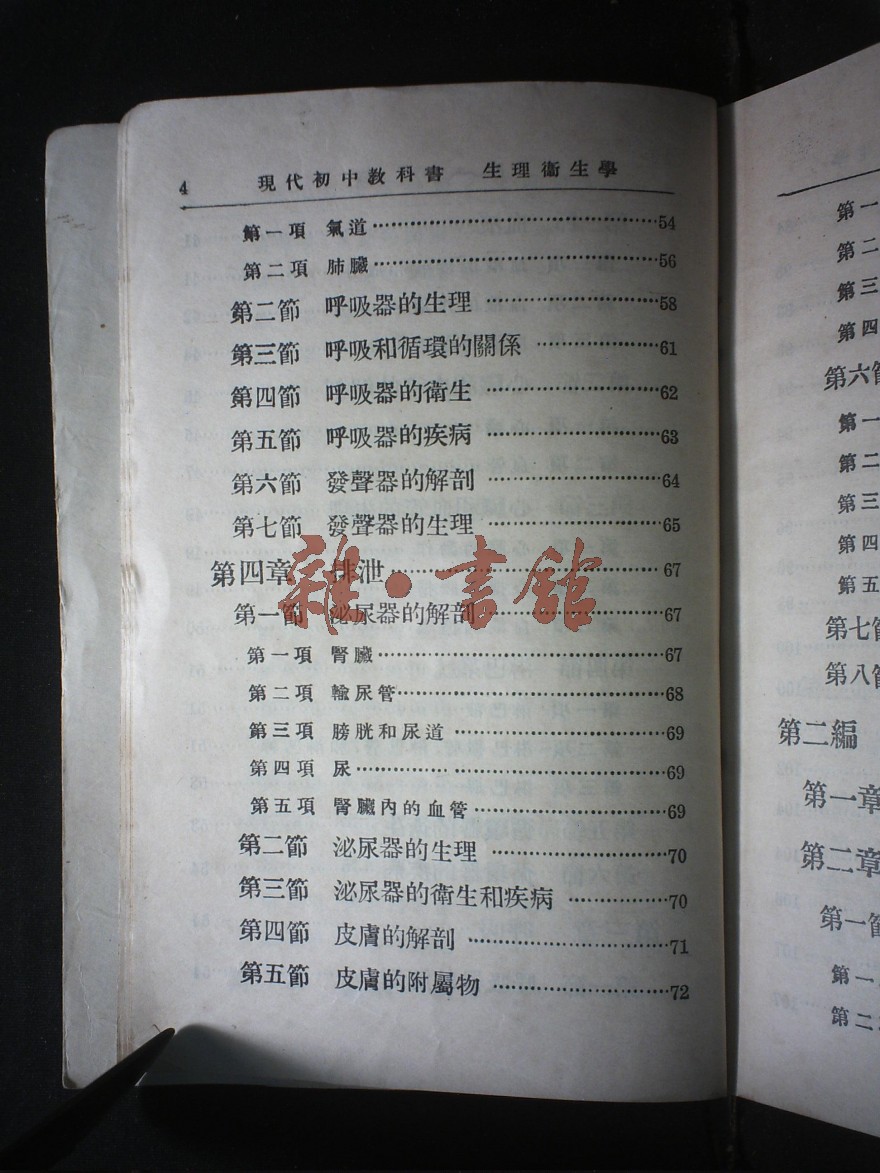 4 現代初中教科書 生理衞生學
第一項 氣道……54
第二項 肺臟……56
第二節 呼吸器的生理……58
第三節 呼吸和循環的關係……61
第四節 呼吸器的衛生……62
第五節 呼吸器的疾病……63
第六節 發聲器的解剖……64
第七節 發聲器的生理……65
第四章 排泄……67
第一節 泌尿器的解剖……67
第一項 腎臟……67
第二項 輸尿管……68
第三項 膀胱和尿道……69
第四項 尿……69
第五項 腎臟內的血管……69
第二節 泌尿器的生理……70
第三節 泌尿器的衛生和疾病……70
第四節 皮膚的解剖……71
第五節 皮膚的附屬物……72
雜·書館
第一
第二
第三
第四
第六節
第一
第二
第三
第四
第五
第七節
第八節
第二編
第一章
第二章
第一節
第一
第二